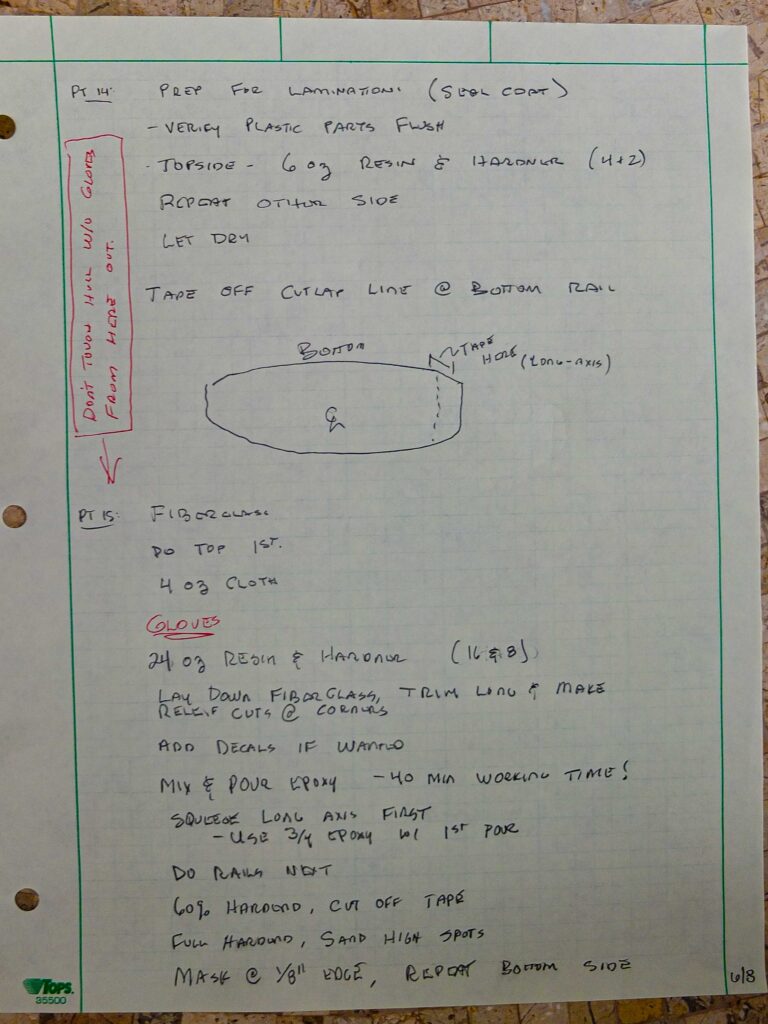 PT 14: PREP FOR LAMINATION: (SEAL COAT)
- VERIFY PLASTIC PARTS FLUSH
- TOPSIDE - 6 oz RESIN & HARDNER (4+2)
REPEAT OTHER SIDE
LET DRY
DON'T TOUCH HULL W/O GLOVES
FROM HERE OUT.
TAPE OFF CUTLAP LINE @ BOTTOM RAIL
BOTTOM
TAPE
HERE (LONG-AXIS)
℄
PT 15: FIBERGLASS
DO TOP 1ST.
4 oz CLOTH
GLOVES
24 oz RESIN & HARDNER (16 & 8)
LAY DOWN FIBERGLASS, TRIM LONG & MAKE
RELEIF CUTS @ CORNERS
ADD DECALS IF WANTED
MIX & POUR EPOXY - 40 MIN WORKING TIME!
SQUEEGE LONG AXIS FIRST
- USE 3/4 EPOXY W/ 1ST POUR
DO RAILS NEXT
60% HARDEND, CUT OFF TAPE
FULL HARDEND, SAND HIGH SPOTS
MASK @ 1/8" EDGE, REPEAT BOTTOM SIDE
6/8
TOPS
35500